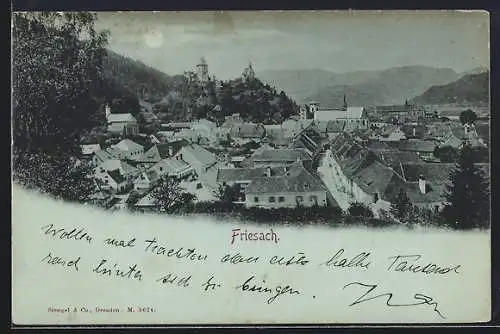 Friesach.
Wollen mal trachten das erste halbe Tausend
rasch hinter sich zu bringen.
Stengel & Co., Dresden. M. 5624.